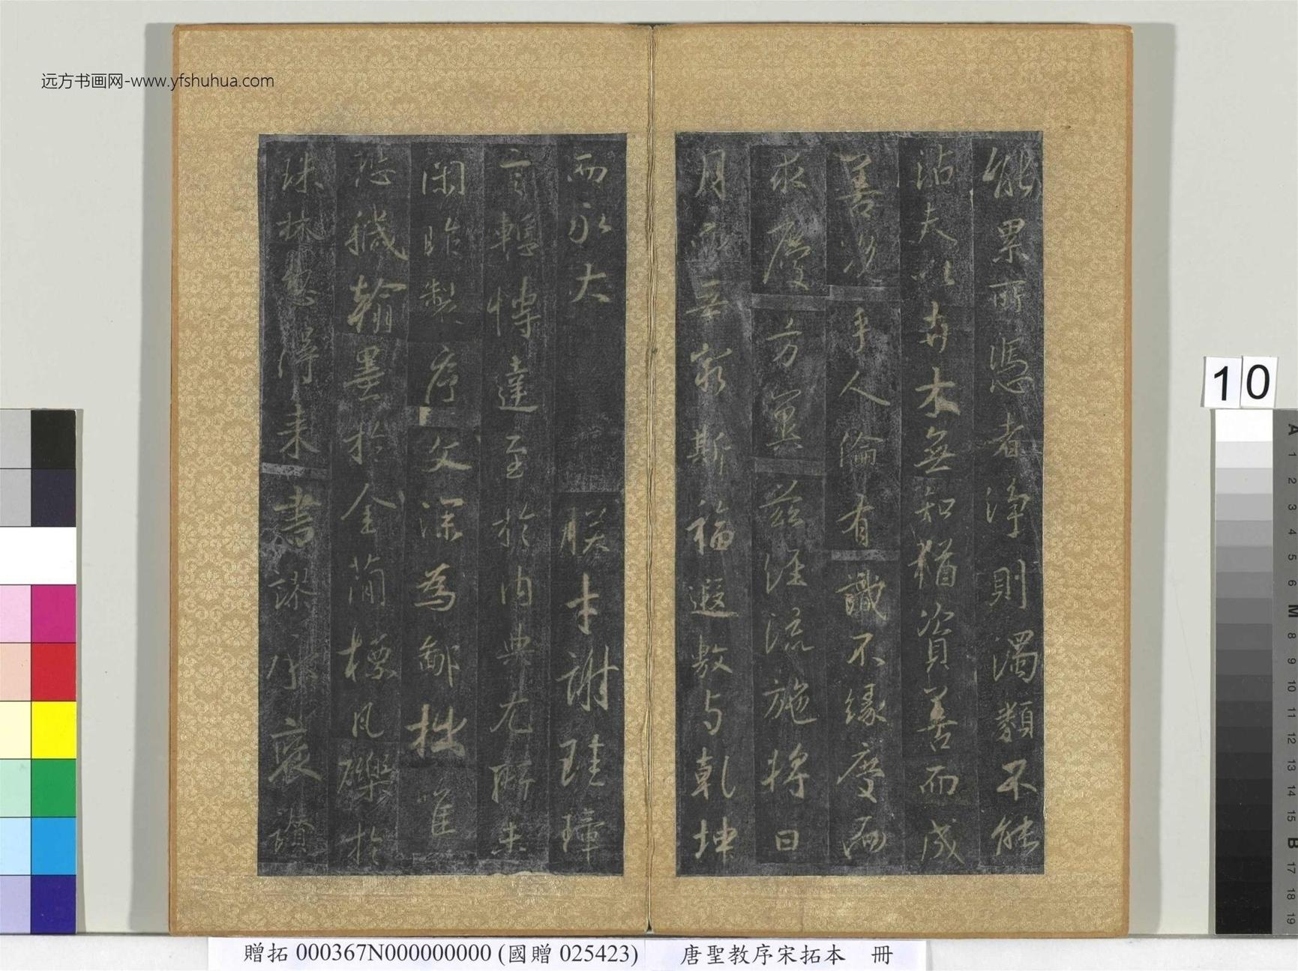 远方书画网-www.yfshuhua.com
能累所憑者淨則濁類不能
沾夫以卉木無知猶資善而成
善況乎人倫有識不緣慶而
求慶方冀茲經流施將日
月而無窮斯福遐敷与乾坤
而永大
朕才謝珪璋
言慚博達至於內典尤所未
閑昨製序文深為鄙拙唯
恐穢翰墨於金簡標瓦礫於
珠林忽得來書謬承褒讚
10
贈拓 000367N000000000 (國贈 025423) 唐聖教序宋拓本 冊
A 1 2 3 4 5 6 M 8 9 10 11 12 13 14 15 B 17 18 19